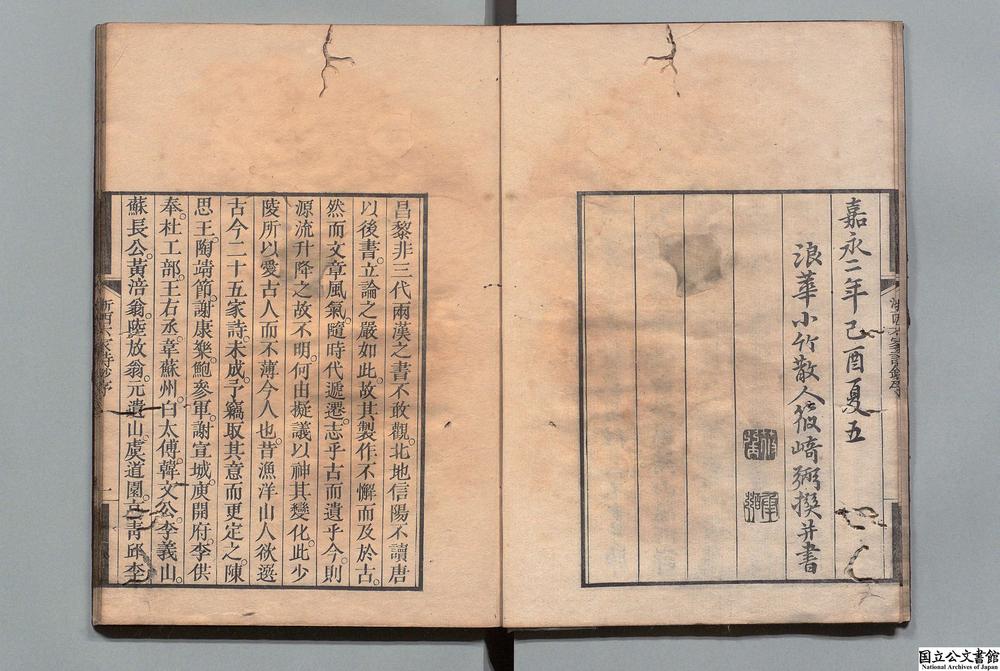 嘉永二年己酉夏五
浪華小竹散人筱崎弼撰并書
昌黎非三代兩漢之書不敢觀。北地信陽不讀唐
以後書。立論之嚴如此。故其製作不懈而及於古。
然而文章風氣。隨時代遞遷。志乎古而遺乎今。則
源流升降之故不明。何由擬議以神其變化。此少
陵所以愛古人而不薄今人也。昔漁洋山人欲選
古今二十五家詩。未成。予竊取其意而更定之。陳
思王。陶靖節。謝康樂。鮑參軍。謝宣城。庾開府。李供
奉。杜工部。王右丞。韋蘇州。白太傅。韓文公。李義山。
蘇長公。黃涪翁。陸放翁。元遺山。虞道園。高青邱。李
浙西六家詩鈔序
浙西六家詩鈔序
一
国立公文書館
National Archives of Japan